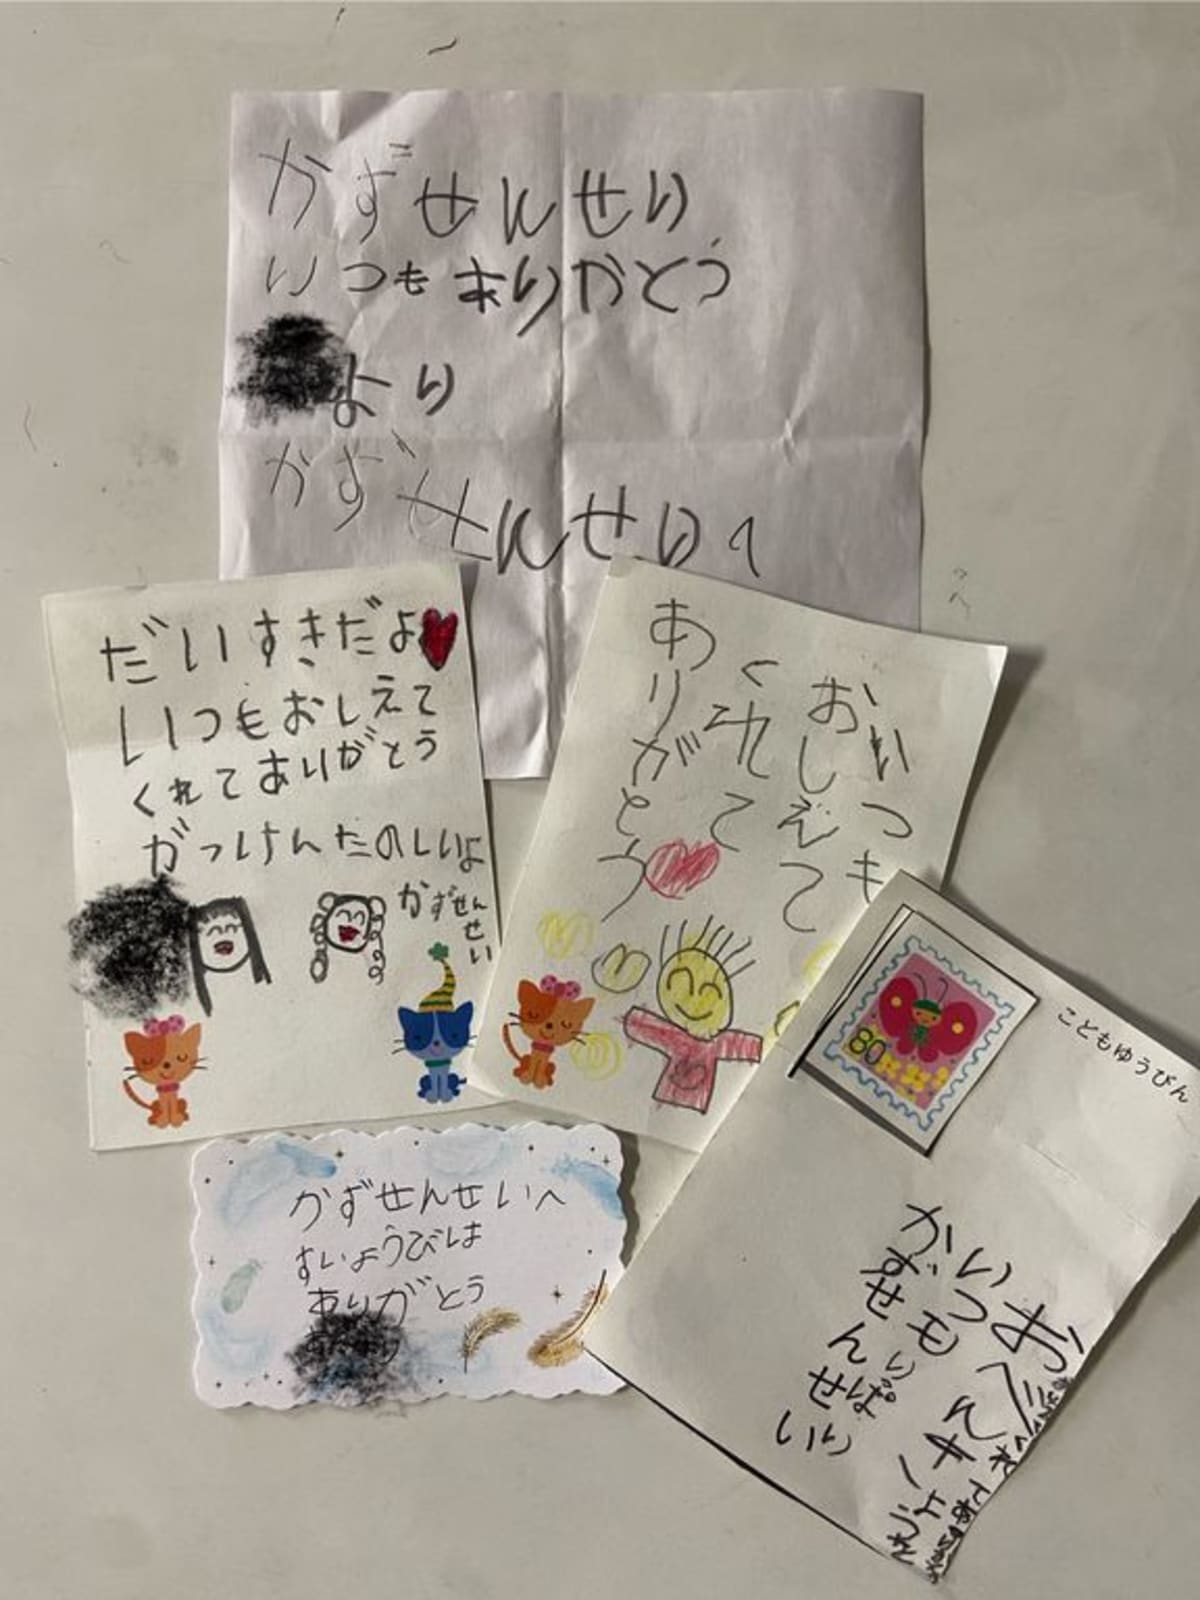 かずせんせい
いつもありがとう
より
かずせんせいへ
だいすきだよ
いつもおしえて
くれてありがとう
がっけんたのしいよ
かずせんせい
いつも
おしえて
くれて
ありがとう
こどもゆうびん
80
おべんきょうを
いつもいっぱい
かずせんせい
かずせんせいへ
すいようびは
ありがとう